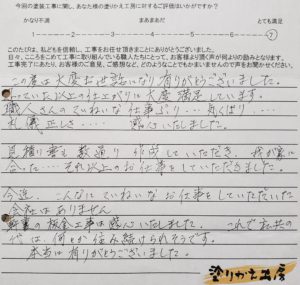 今回の塗装工事に関し、あなた様の塗りかえ工房に対するご評価はいかがですか？
かなり不満 まあまあだ とても満足
1 2 3 4 5 6 7
このたびは、私どもを信頼し、工事をお任せ頂きまことにありがとうございました。
日々、こころをこめて工事に取り組んでいる職人たちにとって、お客様より頂く声が何よりの励みとなります。
工事完了にあたり、お客様のご意見、ご感想など、どのようなことでもかまいませんので声をお聞かせください。
この度は大変お世話になり有りがとうございました。
思っていた以上の仕上がりに大変満足しています。
職人さんのていねいな仕事ぶり…気くばり…
礼儀正しさ… 感心いたしました。
見積り書も数通り作成していただき、我が家に
合った…それ以上のお仕事をしていただきました。
今迄、こんなにていねいなお仕事をしていただいた
会社はありません
の板金工事は感心いたしました。これで私共の
代は、何とか住み続けられそうです。
本当に有りがとうございました。
塗りかえ工房